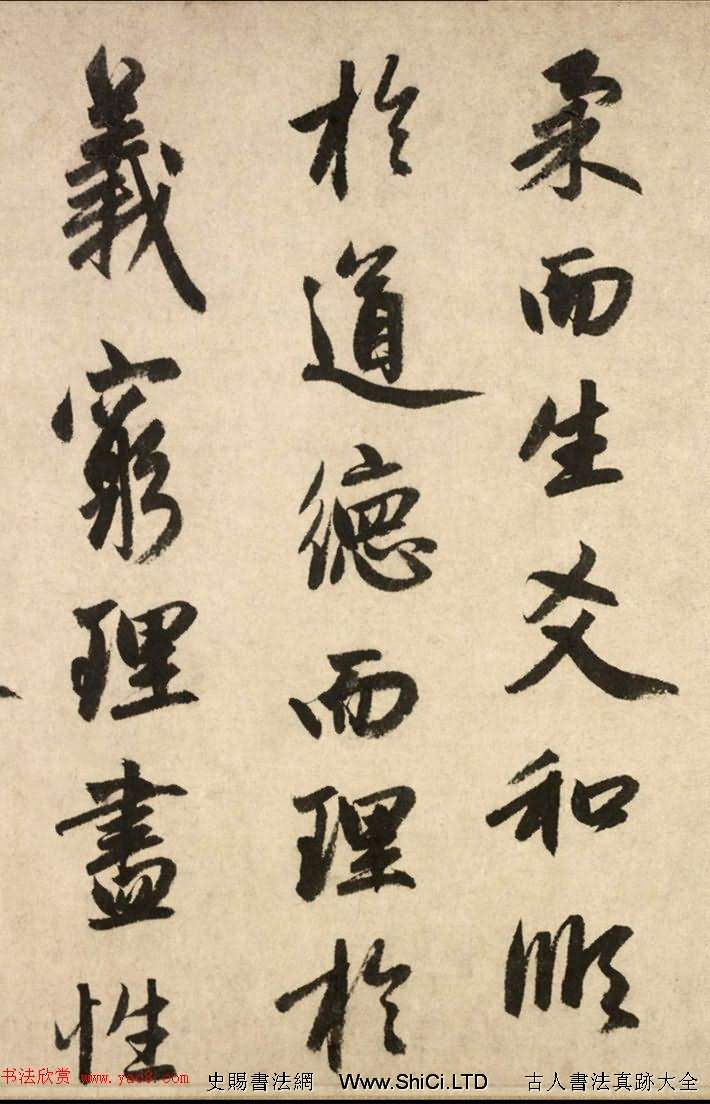 柔而生爻和順
於道德而理於
義窮理盡性
书法欣赏 www.yac8.com 史賜書法網 Www.ShiCi.LTD 古人書法真跡大全